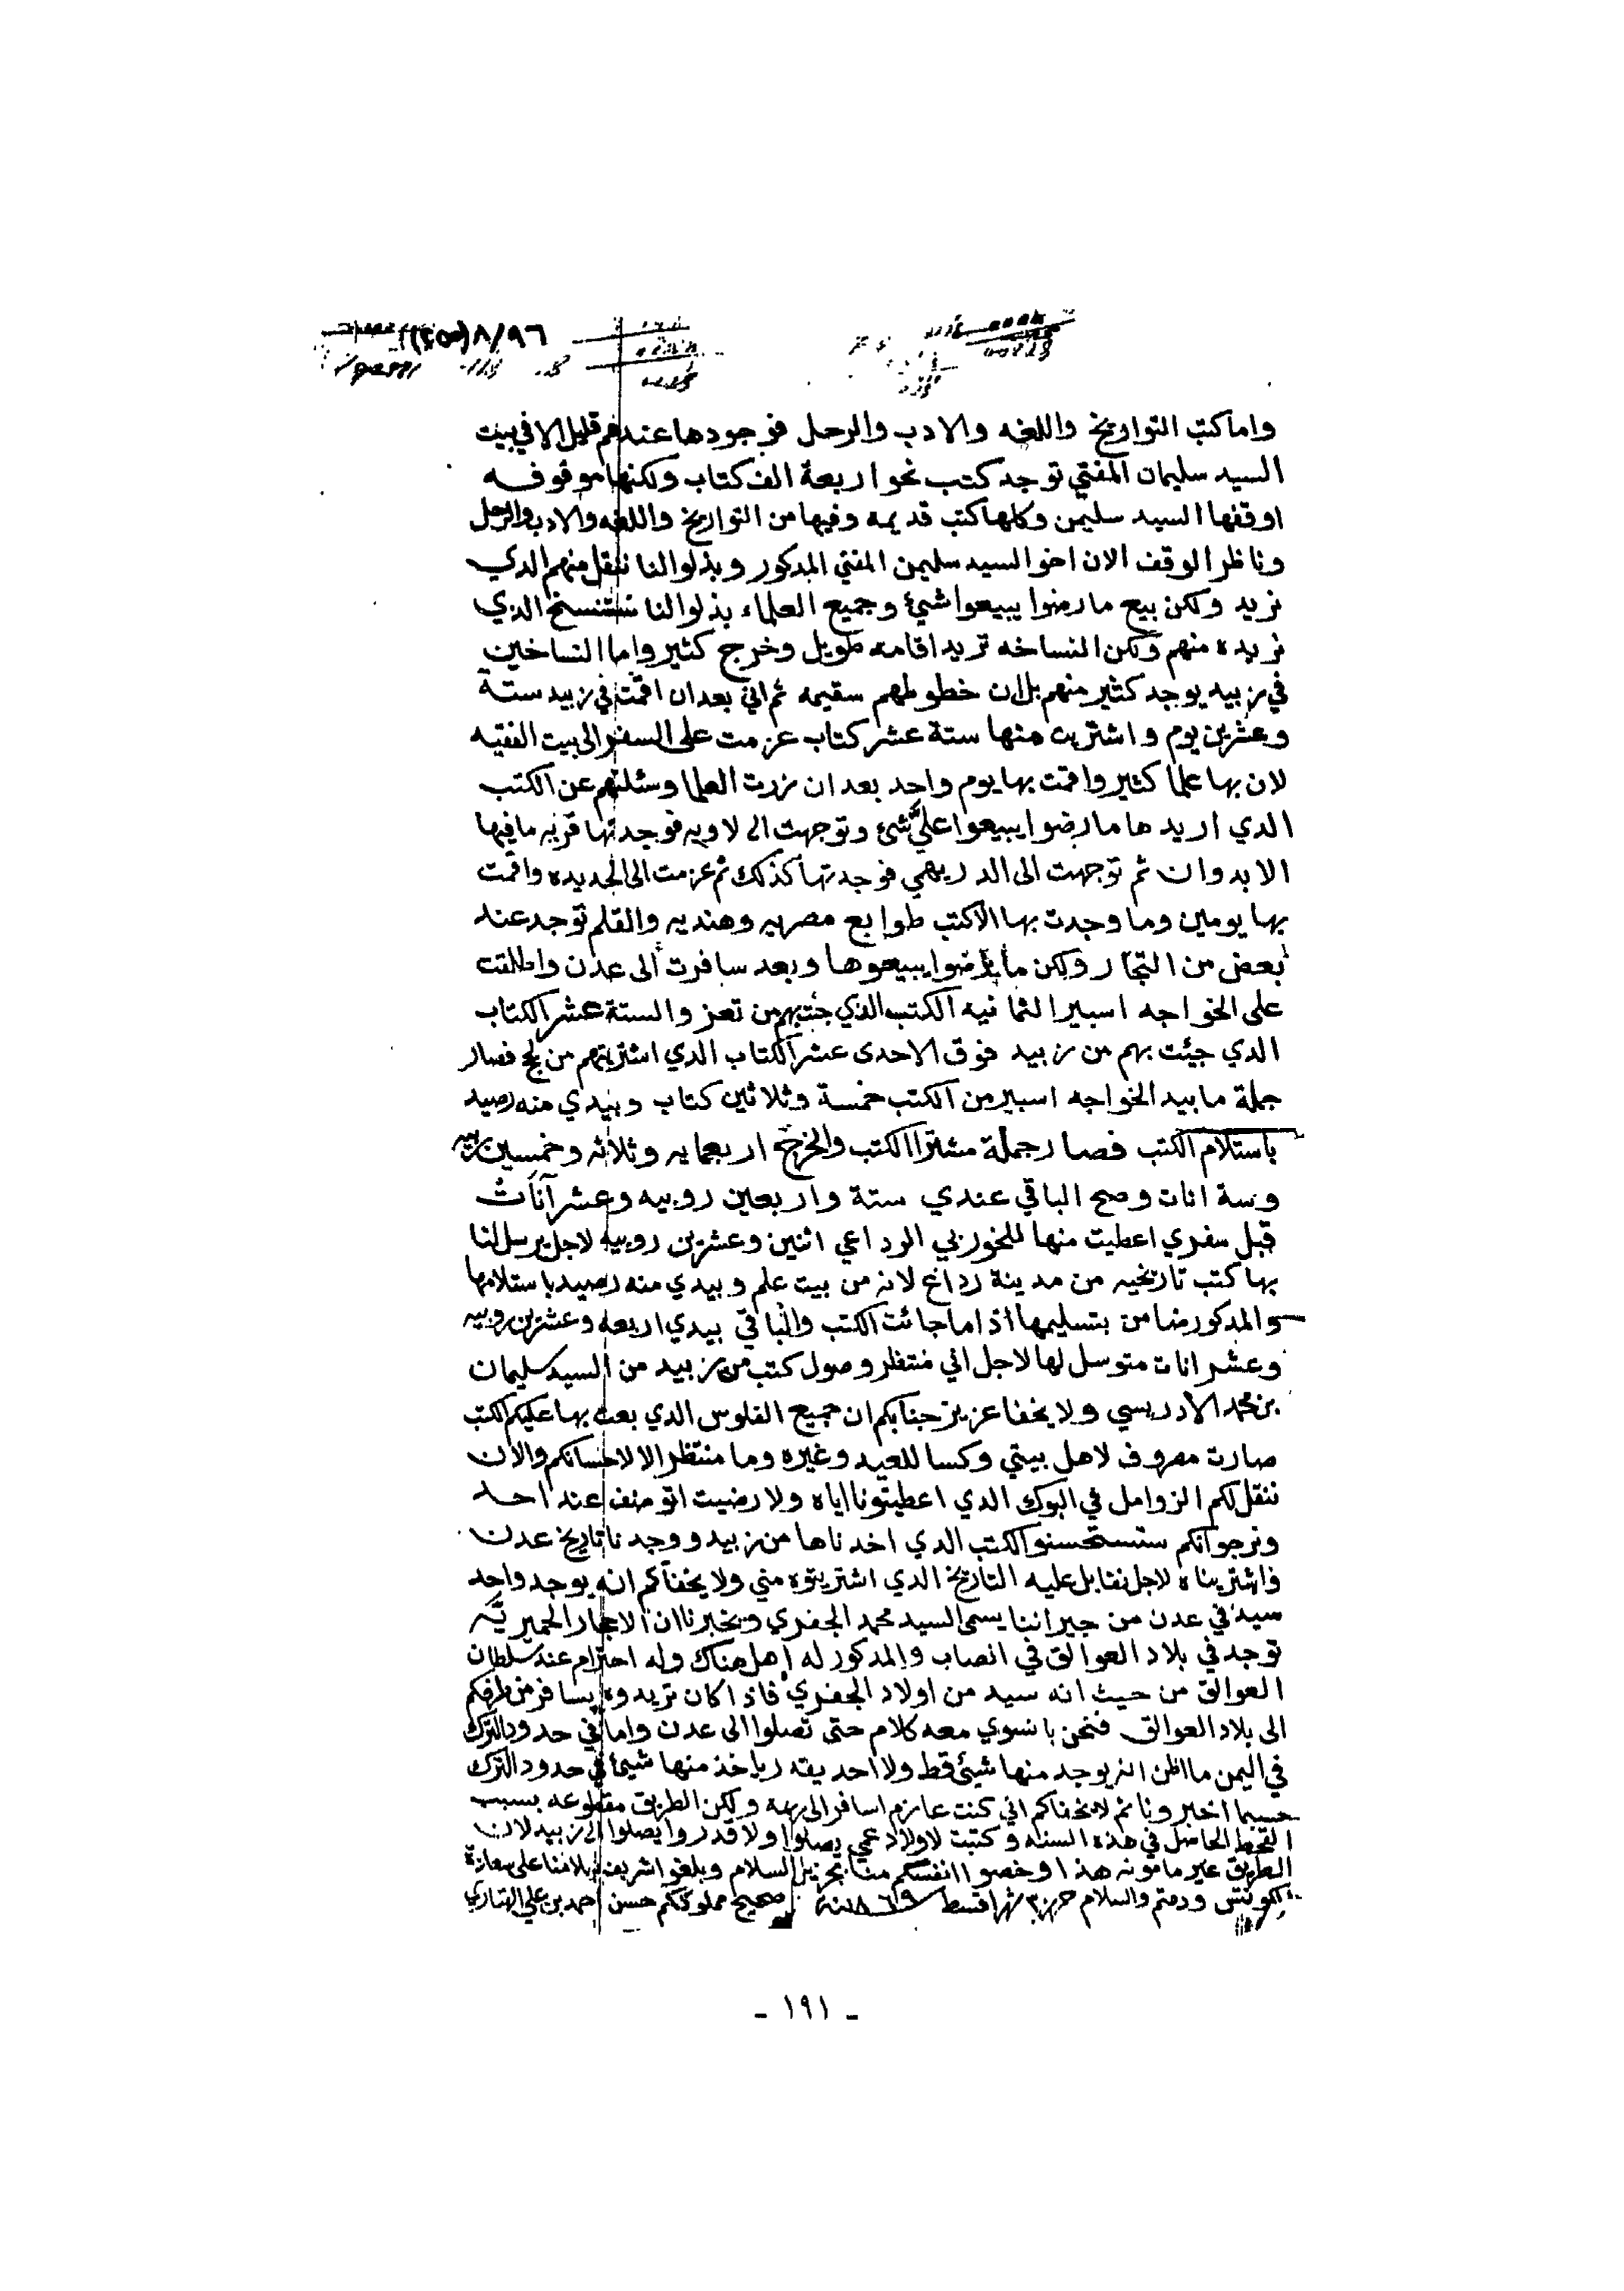 ٨/٩٦ (٢٥٥)
واما كتب التواريخ واللغه والادب والرحل فوجودها عندهم قليل الا في بيت
السيد سليمان المفتي توجد كتب نحو اربعة الف كتاب ولكنها موقوفه
اوقفها السيد سليمن وكلها كتب قديمه وفيها من التواريخ واللغه والادب والرحل
وناظر الوقف الان اخو السيد سليمن المفتي المدكور وبدلوا لنا ننقل منهم الدي
نريد ولكن بيع ما رضوا يبيعوا شيئ وجميع العلماء بدلوا لنا نستنسخ الدي
نريده منهم ولكن النساخه تريد اقامه طويل وخرج كثير واما النساخين
في زبيد يوجد كثير منهم بل ان خطوطهم سقيمه ثم اني بعد ان اقمت في زبيد ستة
وعشرين يوم واشتريت منها ستة عشر كتاب عزمت على السفر الى بيت الفقيه
لان بها علما كثير واقمت بها يوم واحد بعد ان زرت العلما وسئلتهم عن الكتب
الدي اريدها ما رضوا يبيعوا عليّ شئ وتوجهت الى لاويه فوجدتها قريه ما فيها
الا بدوان ثم توجهت الى الدريهمي فوجدتها كذلك ثم عزمت الى الحديده واقمت
بها يومين وما وجدت بها الا كتب طوابع مصريه وهنديه والقلم توجد عند
بعض من التجار ولكن ما يرضوا يبيعوها وبعد سافرت الى عدن واطلقت
على الخواجه اسبير الثمانيه الكتب الذي جئت بهم من تعز والستة عشر الكتاب
الدي جيئت بهم من زبيد فوق الاحدى عشر الكتاب الدي اشتريتهم من لحج فصار
جملة ما بيد الخواجه اسبير من الكتب خمسة وثلاثين كتاب وبيدي منه رصيد
باستلام الكتب فصار جملة مشترا الكتب والخرج اربعمايه وثلاثه وخمسين ربيه
وسة انات وصح الباقي عندي ستة واربعين روبيه وعشر آنات
قبل سفري اعطيت منها للخوربي الرداعي اثنين وعشرين روبيه لاجل يرسل لنا
بها كتب تاريخيه من مدينة رداع لانه من بيت علم وبيدي منه رصيد باستلامها
والمدكور ضامن بتسليمها اذا ما جائت الكتب والباقي بيدي اربعه وعشرين روبيه
وعشر انات متوسل لها لاجل اني منتظر وصول كتب من زبيد من السيد سليمان
بن محمد الادريسي ولا يخفا عزيز جنابكم ان جميع الفلوس الدي بعت بها عليكم الكتب
صارت مصروف لاهل بيتي وكسا للعيد وغيره وما منتظر الا لاحسانكم والان
ننقل لكم الزوامل في البوك الدي اعطيتونا اياه ولا رضيت اتوضف عند احد
ونرجوا انكم ستستحسنوا الكتب الدي اخدناها من زبيد ووجدنا تاريخ عدن
فاشتريناه لاجل نقابل عليه التاريخ الدي اشتريتوه مني ولا يخفاكم انه يوجد واحد
سيد في عدن من جيراننا يسمى السيد محمد الجفري ويخبرنا ان الاحجار الحميريّه
توجد في بلاد العوالق في انصاب والمدكور له اهل هناك وله احترام عند سلطان
العوالق من حيث انه سيد من اولاد الجفري فاذا كان تريدوه يسافر من طرفكم
الى بلاد العوالق فنحن با نسوي معه كلام حتى تصلوا الى عدن واما في حدود الترك
في اليمن ما اظن انه يوجد منها شيئ قط ولا احد يقدر ياخذ منها شيئا في حدود الترك
حسبما اخبرونا ثم لا يخفاكم اني كنت عازم اسافر الى ولكن الطريق مقطوعه بسبب
القحط الحاصل في هذه السنه وكتبت لاولاد عمي يصلوا ولا قدروا يصلوا الى زبيد لان
الطريق غير مامونه هذا وخصوا انفسكم منا بجزيل السلام وبلغوا شريف سلامنا على سعادة
الكونتس ودمتم والسلام حرر ٣٠ شهر اقسط سنة ١٨٩٩ صحيح مملوككم حسن احمد بن علي الهتاري
- ١٩١ -